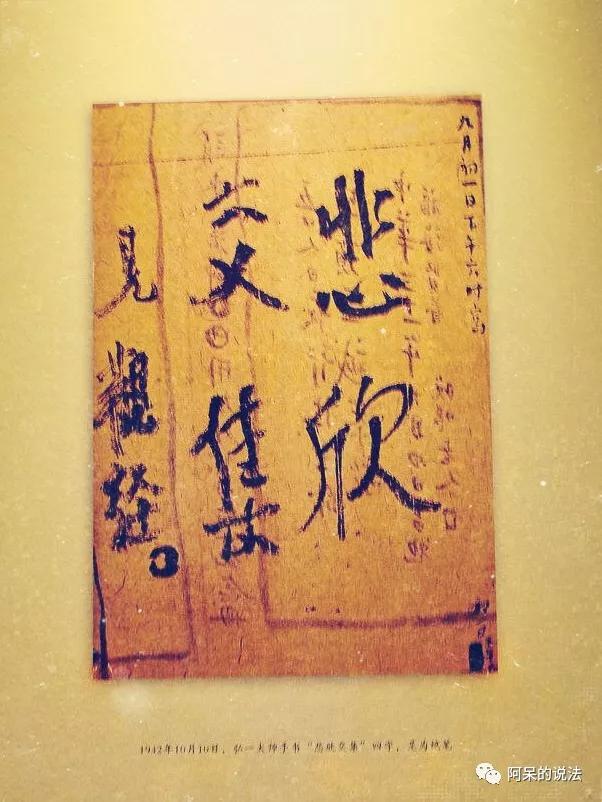 九月初一日下午六时写
悲欣
交集
見觀經。
1942年10月10日，弘一大师手书“悲欣交集”四字，是为绝笔
阿呆的说法